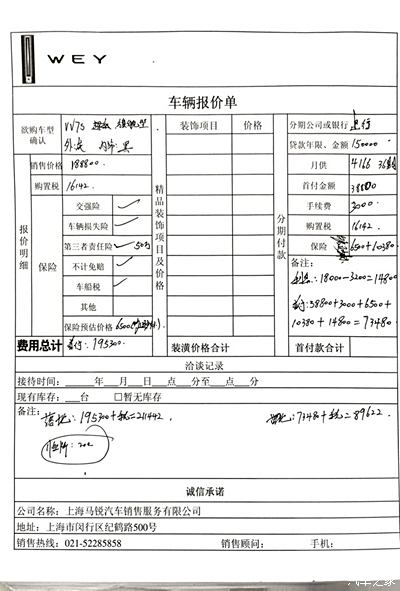 WEY
车辆报价单
欲购车型确认 VV7S 装饰项目 价格 分期公司或银行
外 内 黑 贷款年限、金额 150000
报价明细 销售价格 188800 精品装饰项目及价格 分期付款 月供 4166 36
购置税 16142 首付金额 38800
保险 交强险 ✓ 手续费 3000
车辆损失险 ✓ 购置税 16142
第三者责任险 50万 保险 6500+10380
不计免赔 ✓ 备注：
车船税 ✓ 18000-3200=14800
其他 38800+3000+6500+
保险预估价格 6500 10380+14800=73480
费用总计 195300 装潢价格合计 首付款合计
洽谈记录
接待时间：____年__月__日__点__分至__点__分
现有库存：__台 □暂无库存
备注：
落地：195300+税=211442. 73480+税=89622.
临牌：200
诚信承诺
公司名称：上海马锐汽车销售服务有限公司
地址：上海市闵行区纪鹤路500号
销售热线：021-52285858 销售顾问： 手机：
汽车之家